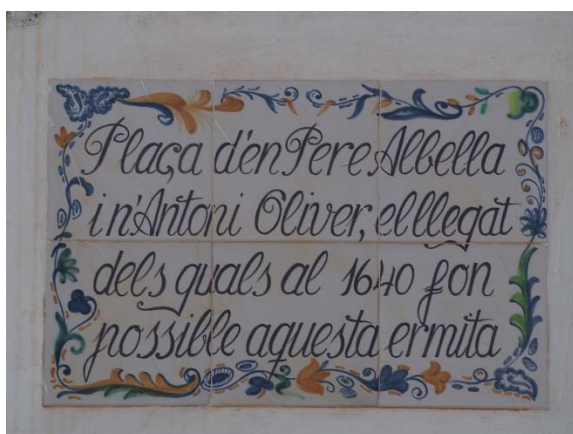 Plaça d'en Pere Albella
i n'Antoni Oliver, el llegat
dels quals al 1640 fon
possible aquesta ermita